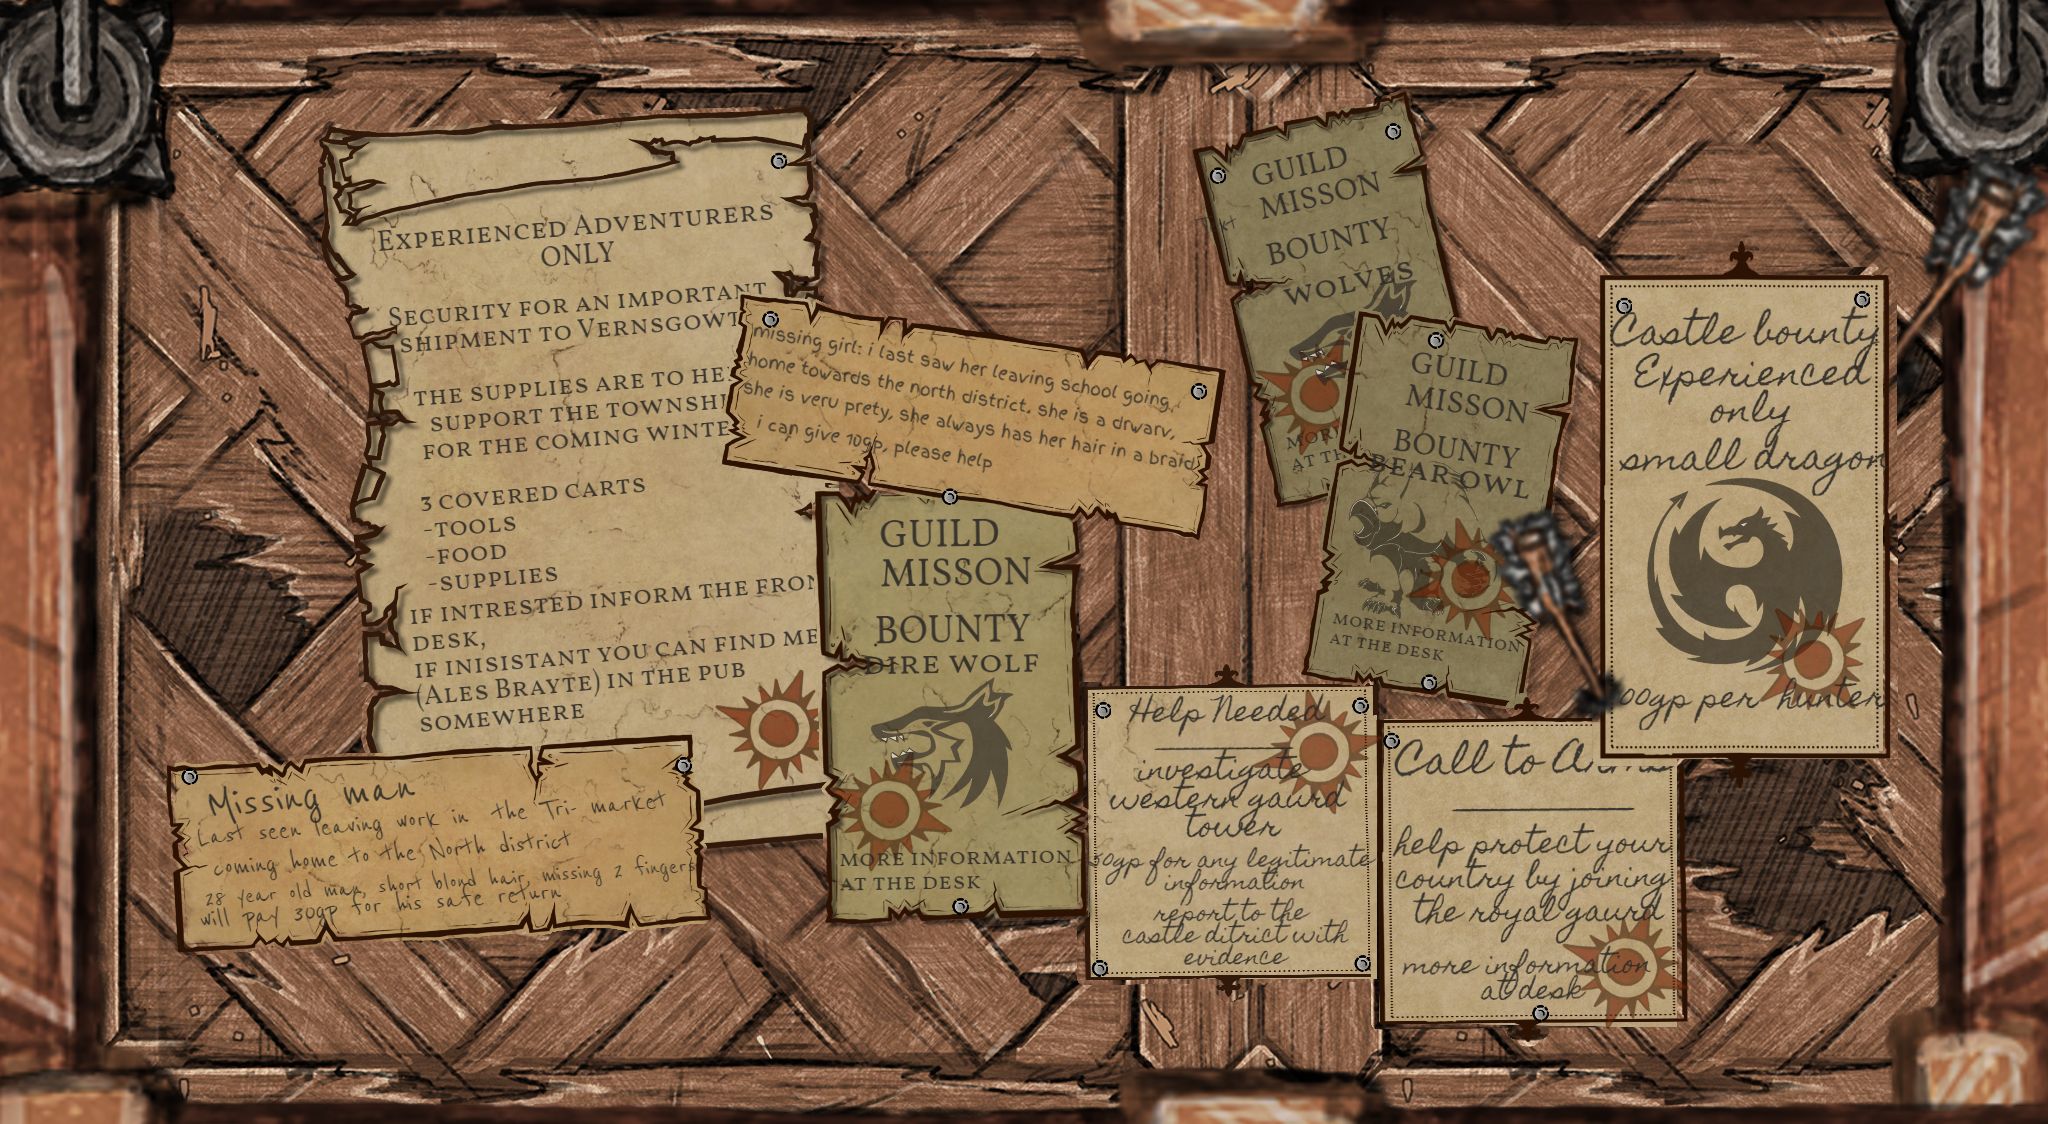 Experienced Adventurers
ONLY
Security for an important
shipment to Vernsgowt
the supplies are to he
support the townshi
for the coming winte
3 covered carts
-tools
-food
-supplies
if intrested inform the fron
desk,
if inisistant you can find me
(Ales Brayte) in the pub
somewhere
missing girl: i last saw her leaving school going
home towards the north district. she is a drwarv,
she is veru prety, she always has her hair in a braid
i can give 10gp, please help
Missing man
Last seen leaving work in the Tri- market
coming home to the North district
28 year old man, short blond hair, missing 2 fingers
will pay 30gp for his safe return
GUILD
MISSON
BOUNTY
DIRE WOLF
MORE INFORMATION
AT THE DESK
GUILD
MISSON
BOUNTY
WOLVES
MOR
AT TH
GUILD
MISSON
BOUNTY
BEAR OWL
MORE INFORMATION
AT THE DESK
Help Needed
investigate
western gaurd
tower
50gp for any legitimate
information
report to the
castle ditrict with
evidence
Call to
help protect your
country by joining
the royal gaurd
more information
at desk
Castle bounty
Experienced
only
small dragon
00gp per hunter